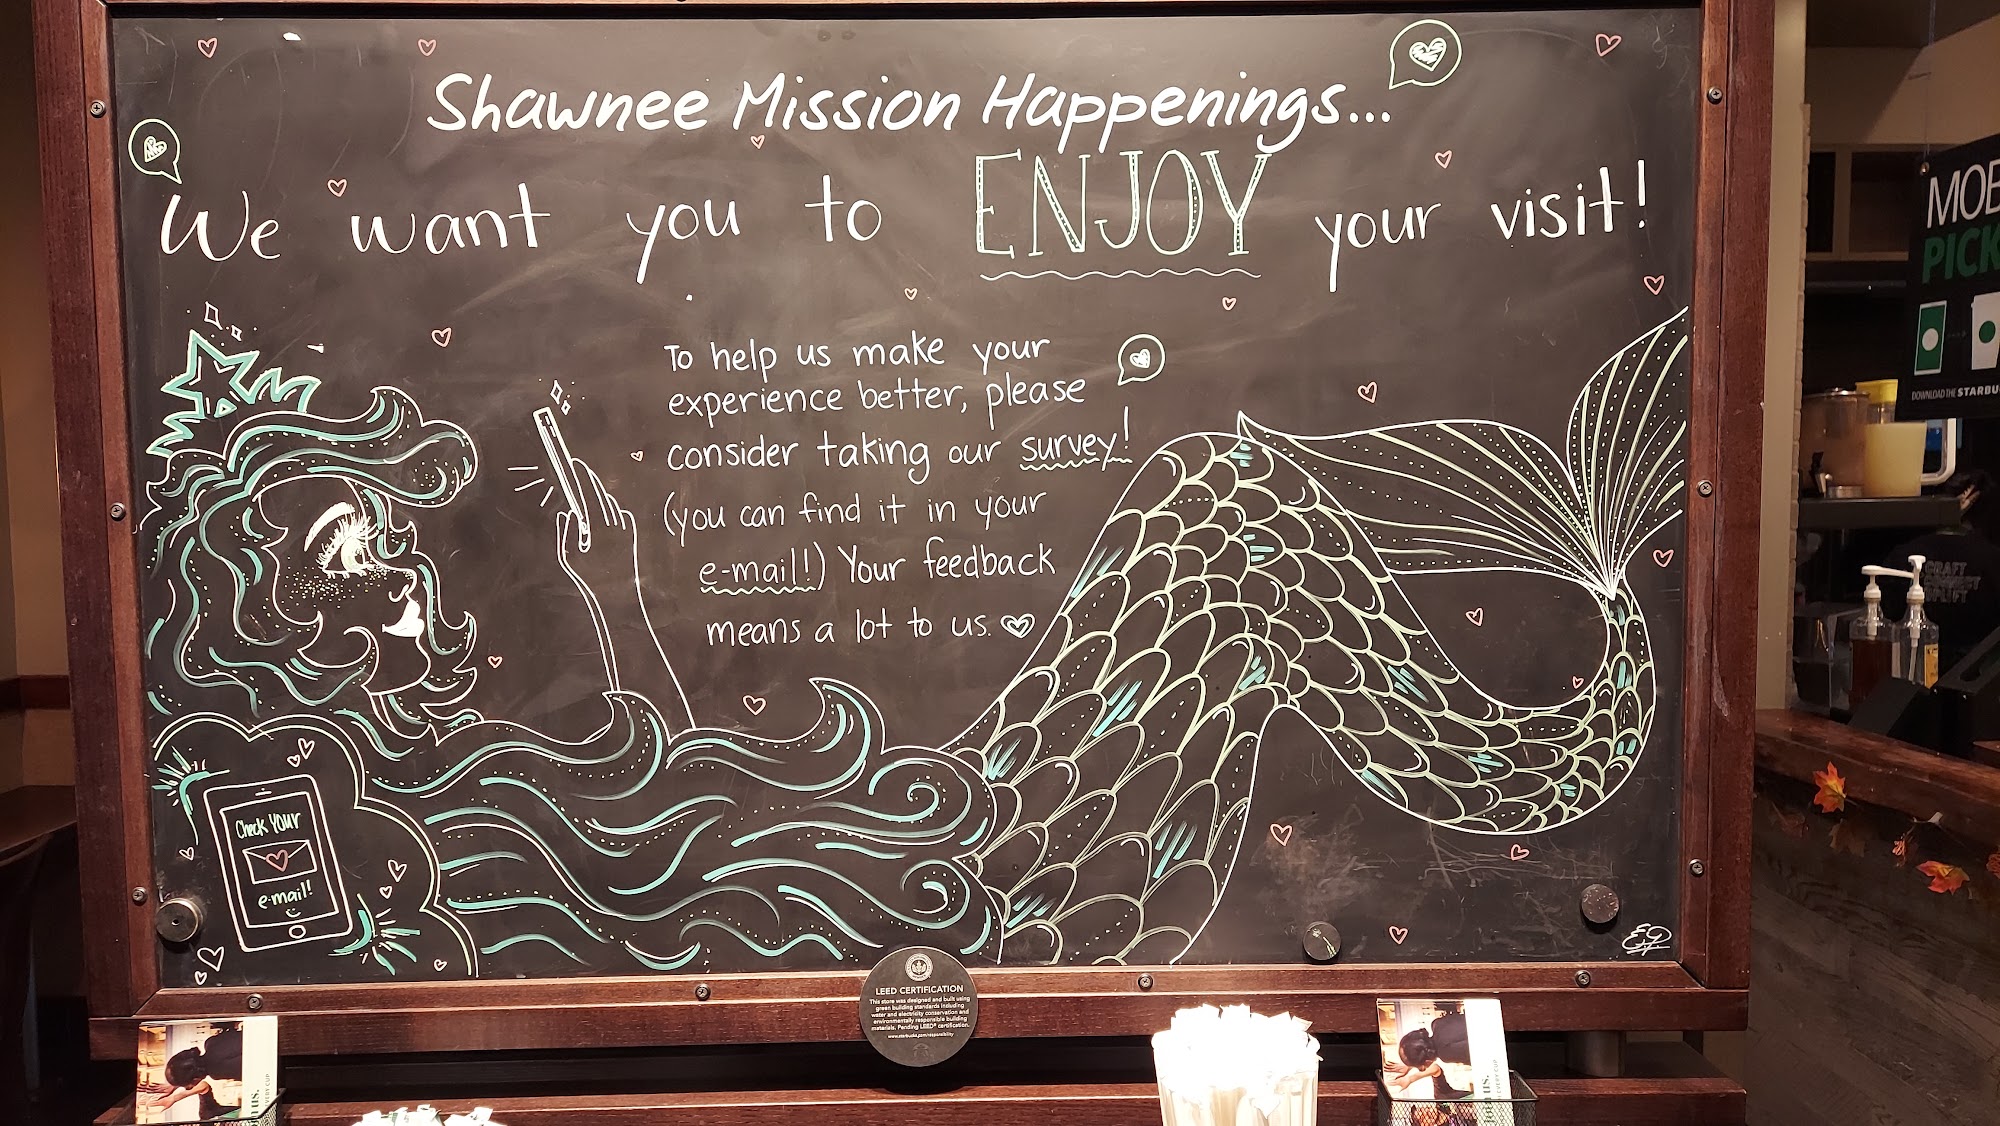 Shawnee Mission Happenings...
We want you to ENJOY your visit!
To help us make your
experience better, please
consider taking our survey!
(you can find it in your
e-mail!) Your feedback
means a lot to us.
Check YOUR
e-mail!
EP
LEED CERTIFICATION
This store was designed and built using
green building standards including
water and electricity conservation and
environmentally responsible building
materials. Pending LEED® certification.
www.starbucks.com/responsibility
MOB
PICK
DOWNLOAD THE STARBU
CRAFT
UPLIFT
us.
EVERY CUP